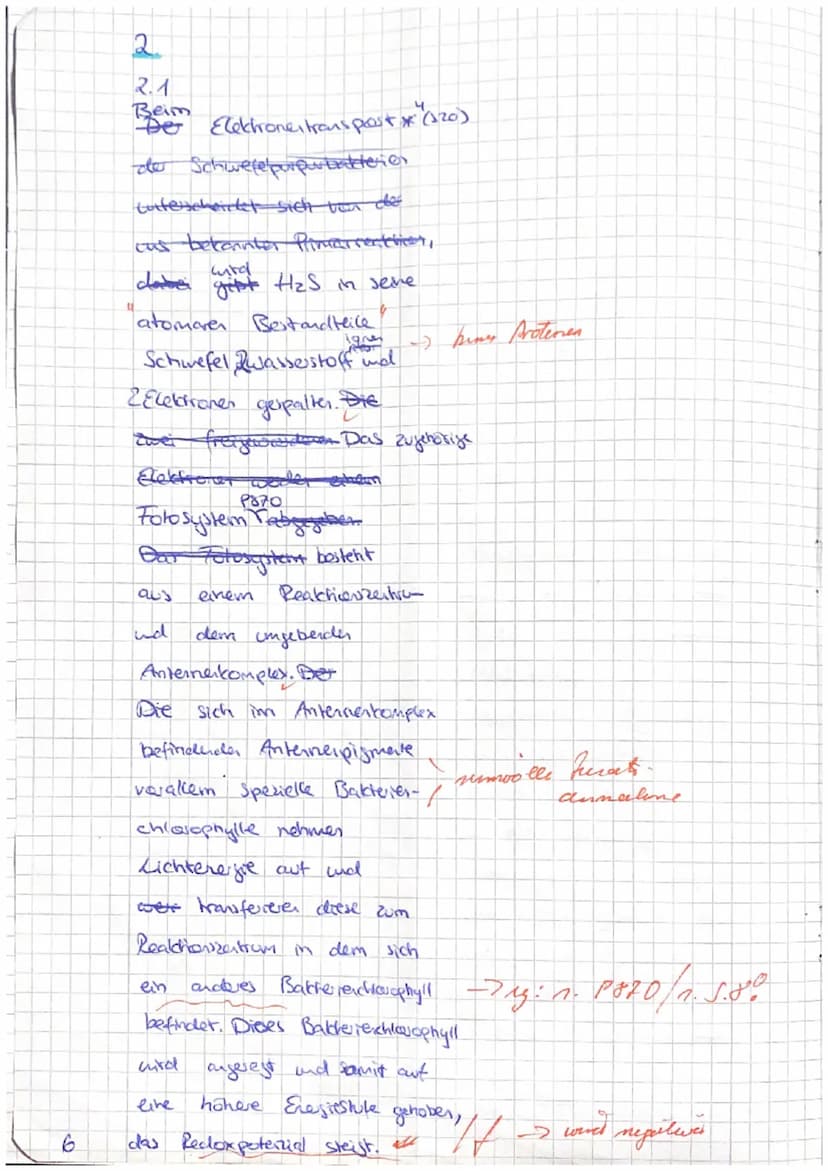 2
2.1
Beim
Der Elektronentransport *⁴ (S20)
der Schwefelpurpurbakterien
unterscheidet sich von der
uns bekannten Primärreaktion,
wird
dabei gibt H2S in seine
"atomaren Bestandteile"
ionen
Schwefel, 2 Wasserstoff und → keine Protonen
2 Elektronen gespalten. Die
zwei freigewordenen Das zugehörige
Elektronen werden einem
P870
Fotosystem abgegeben.
Das Fotosystem besteht
aus einem Reaktionszentrum
und dem umgebenden
Antennenkomplex. Der
Die sich im Antennenkomplex
befindenden Antennenpigmente
vorallem spezielle Bakterien- sinnvolle Zusatz-
annahme
chlorophylle nehmen
Lichtenergie auf und
transferieren diese zum
Reaktionszentrum in dem sich
ein anderes Bakterienchlorophyll → vgl. P870/
befindet. Dieses Bakterienchlorophyll
wird angeregt und somit auf
eine höhere Energiestufe gehoben,
das Redoxpotenzial steigt. f → wird negativer
6